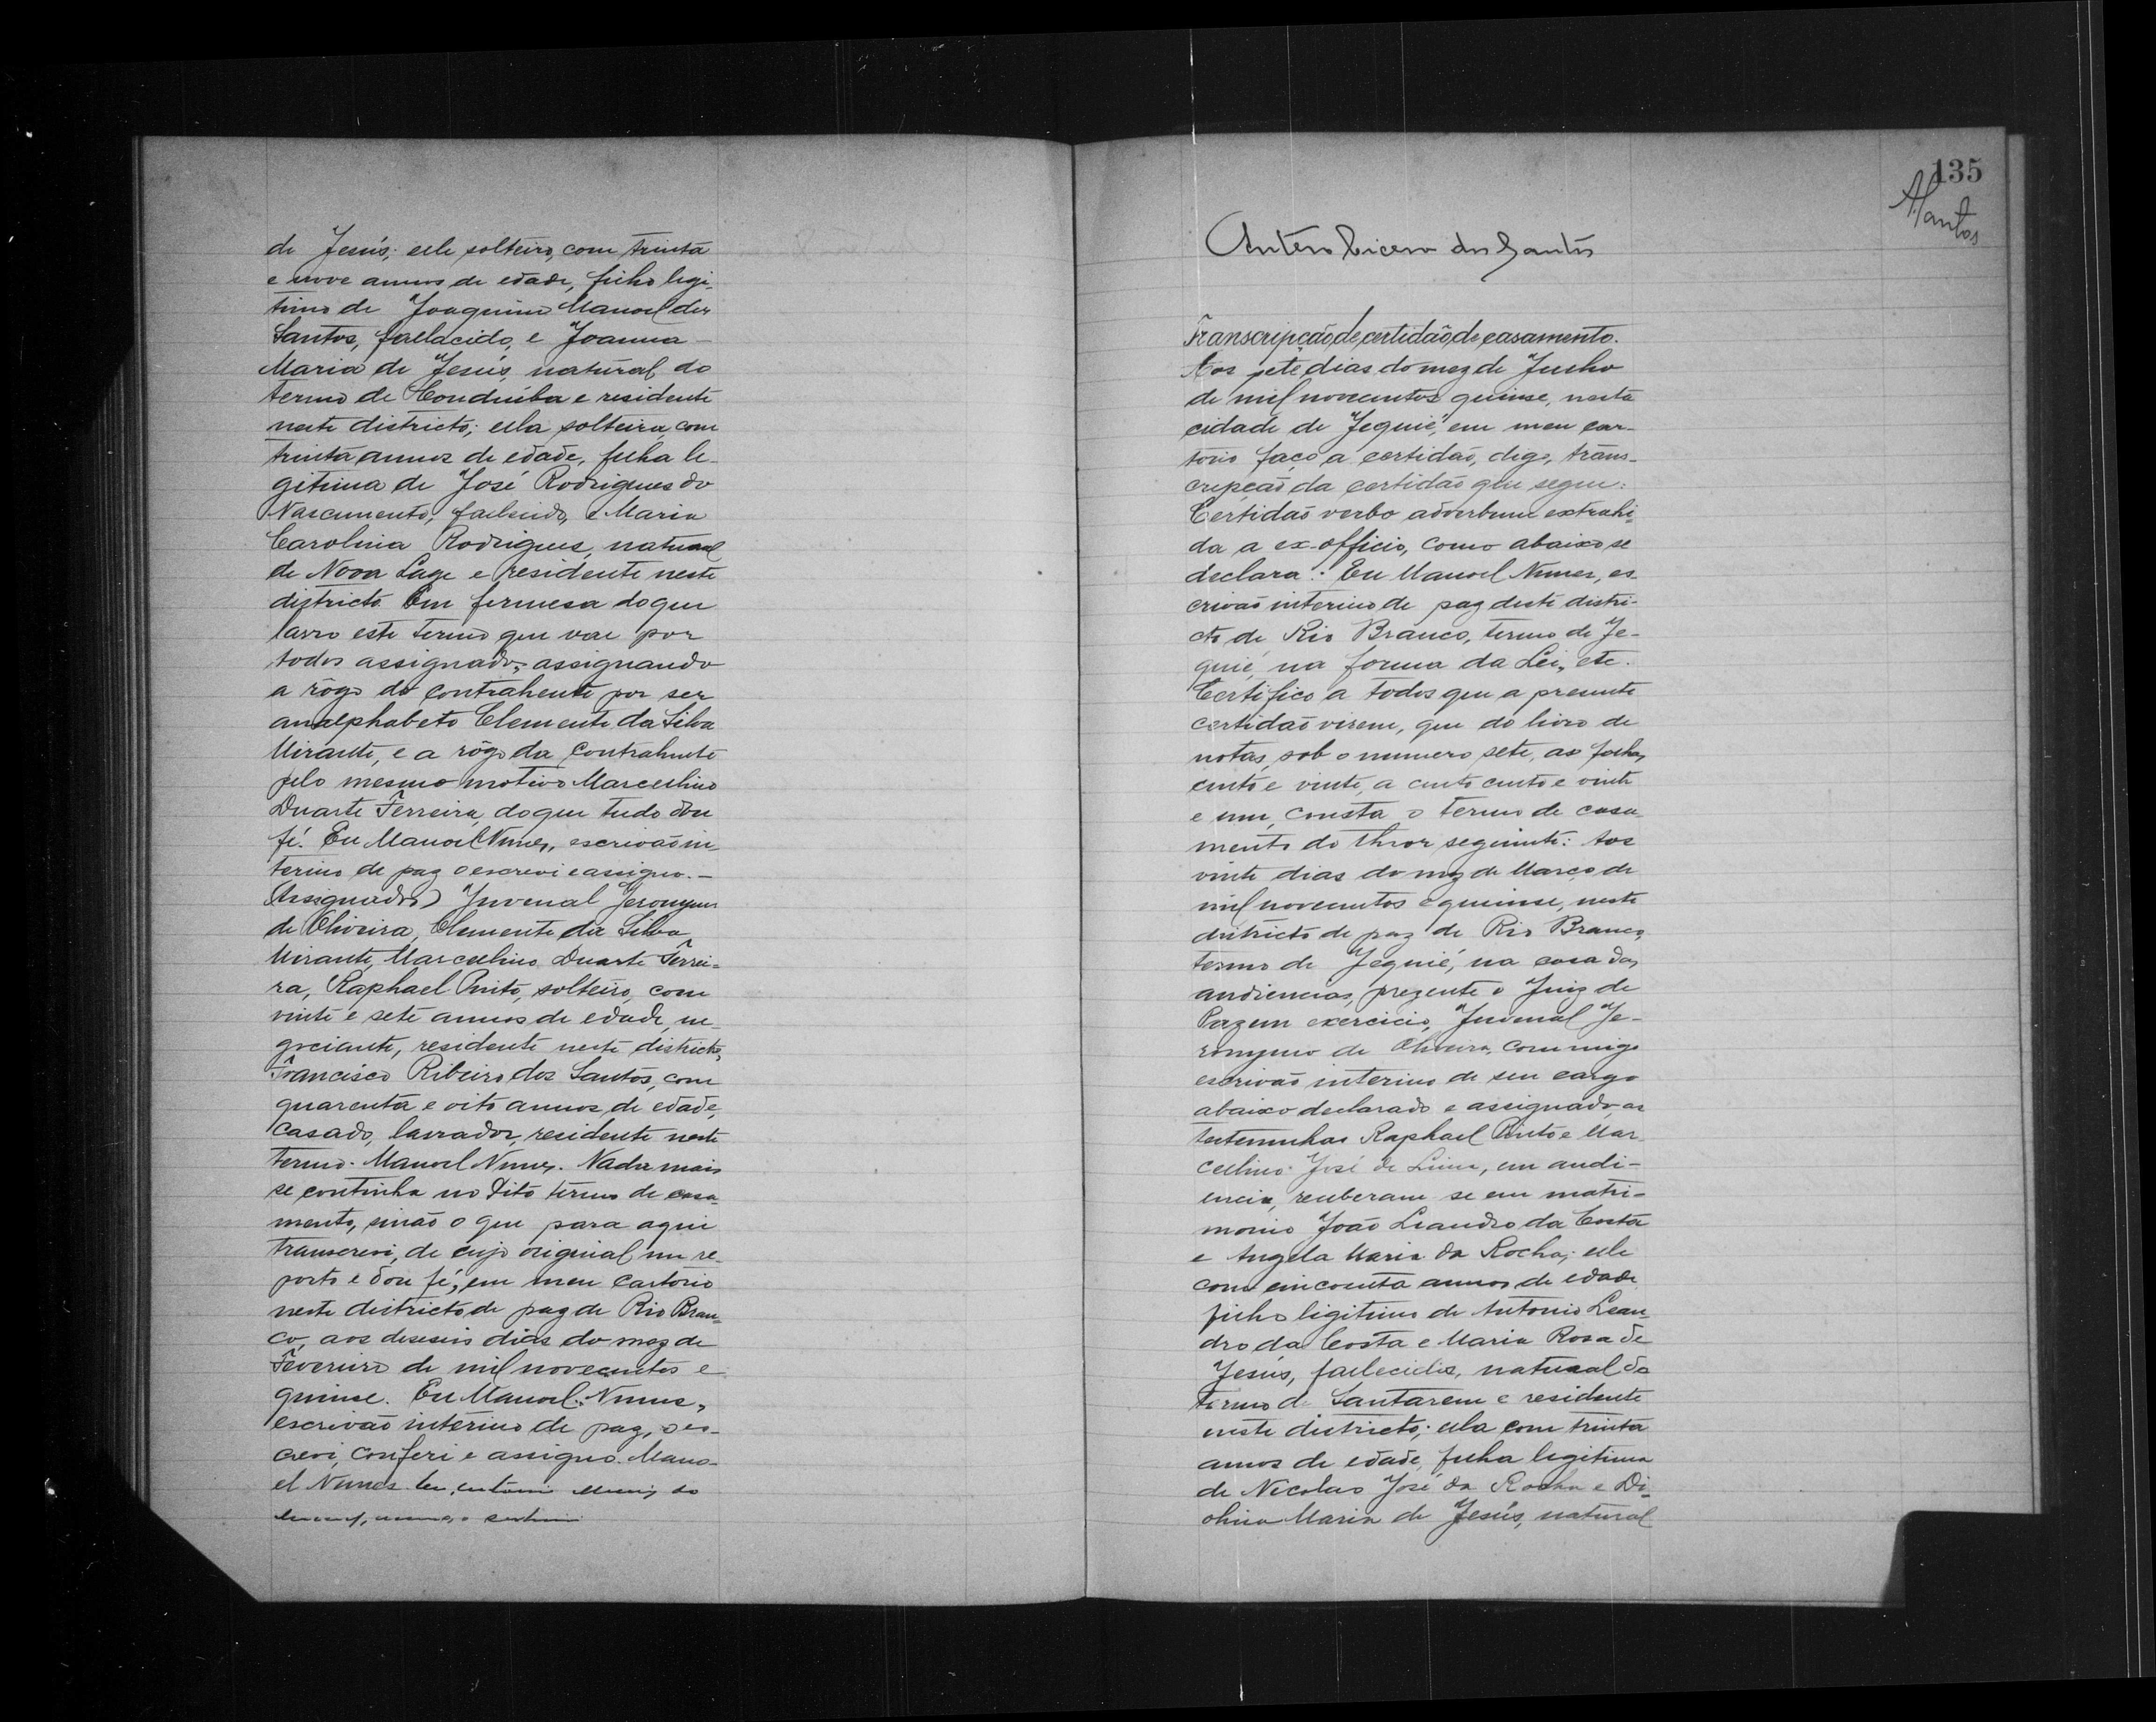 de Jesús; elle solteiro, com trinta
e nove annos de edade, filho legi-
timo de Joaquim Manoel dos
Santos, fallacido, e Joanna
Maria de Jesús, natural do
termo de Condeúba e residente
neste districto; ella solteira, com
trinta annos de edade, filha le-
gitima de José Rodrigues do
Nascimento, fallecido, e Maria
Carolina Rodrigues, natural
de Nova Lage e residente neste
districto. Em firmesa do que
lavro este termo que vae por
todos assignado, assignando
a rôgo do contrahente por ser
analphabeto Clemente da Silva
Mirante, e a rôgo da contrahente
pelo mesmo motivo Marcellino
Duarte Ferreira, do que tudo dou
fé. Eu Manoel Nunes, escrivão in
terino de paz o escrevi e assigno. —
(Assignados) Juvenal Jeronymo
de Oliveira, Clemente da Silva
Mirante, Marcellino Duarte Ferrei-
ra, Raphael Pinto, solteiro, com
vinte e sete annos de edade, ne-
gociante, residente neste districto,
Francisco Ribeiro dos Santos, com
quarenta e oito annos de edade,
casado, lavrador, residente neste
termo. Manoel Nunes. Nada mais
se continha no dito termo de casa
mento, sinão o que para aqui
transcrevi, de cujo original me re-
porto e dou fé, em meu cartorio
neste districto de paz de Rio Bran-
co, aos deseseis dias do mez de
Fevereiro de mil novecentos e
quinse. Eu Manoel Nunes,
escrivão interino de paz, o es-
crevi, conferi e assigno. Mano-
el Nunes. Eu, Antonio
135
ASantos
Antero Cicero dos Santos
Transcripção de certidão de casamento.
Aos sete dias do mez de Junho
de mil novecentos quinse, nesta
cidade de Jequié, em meu car-
torio faço a certidão, digo, trans-
cripção da certidão que segue:
Certidão verbo adverbum extrahi-
da a ex-officio, como abaixo se
declara: Eu Manoel Nunes, es
crivão interino de paz deste distri-
cto de Rio Branco, termo de Je-
quié, na forma da Lei, etc.
Certifico a todos que a presente
certidão virem, que do livro de
notas, sob o numero sete, as folhas
cento e vinte, a cento cento e vinte
e um, consta o termo de casa-
mento do theor seguinte: Aos
vinte dias do mez de Março de
mil novecentos e quinse, neste
districto de paz de Rio Branco,
termo de Jequié, na casa das
audiencias, prezente o Juiz de
Paz em exercicio, Juvenal Je-
ronymo de Oliveira, commigo
escrivão interino de seu cargo
abaixo declarado e assignado, as
testemunhas Raphael Pinto e Mar-
cellino José de Lima, em audi-
encia, receberam se em matri-
monio João Leandro da Costa
e Angela Maria da Rocha; elle
com cincoenta annos de edade
filho ligitimo de Antonio Lean-
dro da Costa e Maria Rosa de
Jesús, fallecidos, natural do
termo de Santarem e residente
neste districto; ella com trinta
annos de edade, filha legitima
de Nicolau José da Rocha e Di-
olina Maria de Jesús, natural